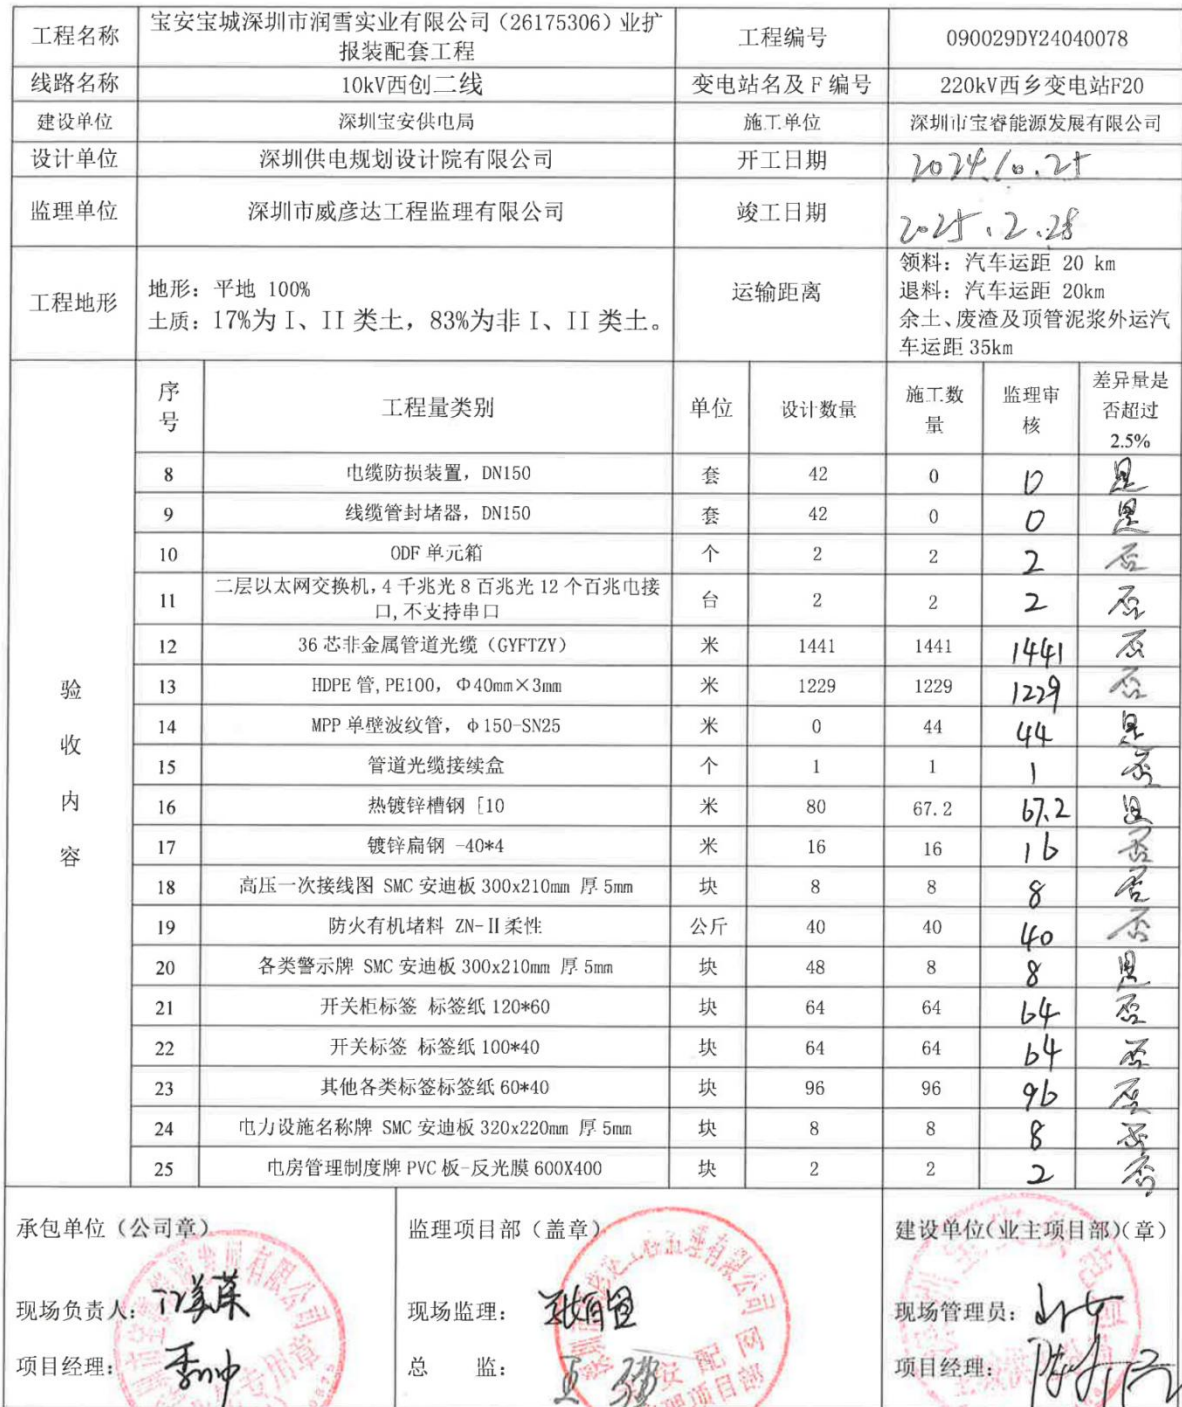 工程名称 宝安宝城深圳市润雪实业有限公司（26175306）业扩
报装配套工程 工程编号 090029DY24040078
线路名称 10kV西创二线 变电站名及 F 编号 220kV西乡变电站F20
建设单位 深圳宝安供电局 施工单位 深圳市宝睿能源发展有限公司
设计单位 深圳供电规划设计院有限公司 开工日期 2024.10.25
监理单位 深圳市威彦达工程监理有限公司 竣工日期 2025.2.28
工程地形 地形：平地 100%
土质：17%为 I、II 类土，83%为非 I、II 类土。
运输距离 领料：汽车运距 20 km
退料：汽车运距 20km
余土、废渣及顶管泥浆外运汽
车运距 35km
验收内容
序号 工程量类别 单位 设计数量 施工数量 监理审核 差异量是否超过2.5%
8 电缆防损装置，DN150 套 42 0 0 是
9 线缆管封堵器，DN150 套 42 0 0 是
10 ODF 单元箱 个 2 2 2 否
11 二层以太网交换机，4 千兆光 8 百兆光 12 个百兆电接
口,不支持串口 台 2 2 2 否
12 36 芯非金属管道光缆（GYFTZY） 米 1441 1441 1441 否
13 HDPE 管,PE100， Φ40mm×3mm 米 1229 1229 1229 否
14 MPP 单壁波纹管， φ150-SN25 米 0 44 44 是
15 管道光缆接续盒 个 1 1 1 否
16 热镀锌槽钢 [10 米 80 67.2 67.2 是
17 镀锌扁钢 -40*4 米 16 16 16 否
18 高压一次接线图 SMC 安迪板 300x210mm 厚 5mm 块 8 8 8 否
19 防火有机堵料 ZN-Ⅱ柔性 公斤 40 40 40 否
20 各类警示牌 SMC 安迪板 300x210mm 厚 5mm 块 48 8 8 是
21 开关柜标签 标签纸 120*60 块 64 64 64 否
22 开关标签 标签纸 100*40 块 64 64 64 否
23 其他各类标签标签纸 60*40 块 96 96 96 否
24 电力设施名称牌 SMC 安迪板 320x220mm 厚 5mm 块 8 8 8 否
25 电房管理制度牌 PVC 板-反光膜 600X400 块 2 2 2 否
承包单位（公司章） 监理项目部（盖章） 建设单位(业主项目部)(章)
现场负责人： 现场监理： 现场管理员：
项目经理： 总 监： 项目经理：